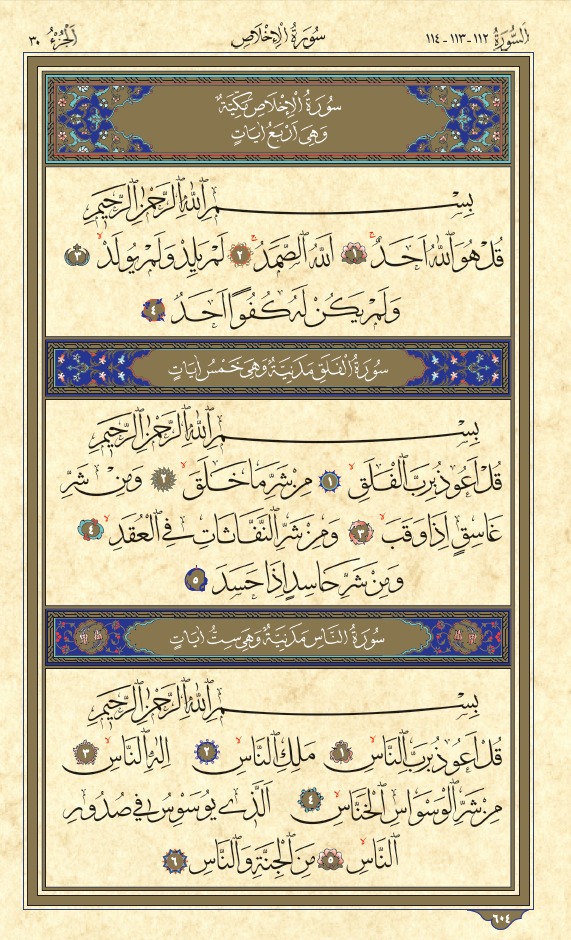 السُّورَةُ ١١٢ - ١١٣ - ١١٤ سُورَةُ الْإِخْلَاصِ الْجُزْءُ ٣٠
سُورَةُ الْإِخْلَاصِ مَكِّيَّةٌ
وَهِيَ اَرْبَعُ اٰيَاتٍ
بِسْمِ اللّٰهِ الرَّحْمٰنِ الرَّحِيمِ
قُلْ هُوَ اللّٰهُ اَحَدٌ ١ اَللّٰهُ الصَّمَدُ ٢ لَمْ يَلِدْ وَلَمْ يُولَدْ ٣
وَلَمْ يَكُنْ لَهُ كُفُوًا اَحَدٌ ٤
سُورَةُ الْفَلَقِ مَدَنِيَّةٌ وَهِيَ خَمْسُ اٰيَاتٍ
بِسْمِ اللّٰهِ الرَّحْمٰنِ الرَّحِيمِ
قُلْ اَعُوذُ بِرَبِّ الْفَلَقِ ١ مِنْ شَرِّ مَا خَلَقَ ٢ وَمِنْ شَرِّ
غَاسِقٍ اِذَا وَقَبَ ٣ وَمِنْ شَرِّ النَّفَّاثَاتِ فِي الْعُقَدِ ٤
وَمِنْ شَرِّ حَاسِدٍ اِذَا حَسَدَ ٥
سُورَةُ النَّاسِ مَدَنِيَّةٌ وَهِيَ سِتُّ اٰيَاتٍ
بِسْمِ اللّٰهِ الرَّحْمٰنِ الرَّحِيمِ
قُلْ اَعُوذُ بِرَبِّ النَّاسِ ١ مَلِكِ النَّاسِ ٢ اِلٰهِ النَّاسِ ٣
مِنْ شَرِّ الْوَسْوَاسِ الْخَنَّاسِ ٤ اَلَّذِي يُوَسْوِسُ فِي صُدُورِ
النَّاسِ ٥ مِنَ الْجِنَّةِ وَالنَّاسِ ٦
٦٠٤